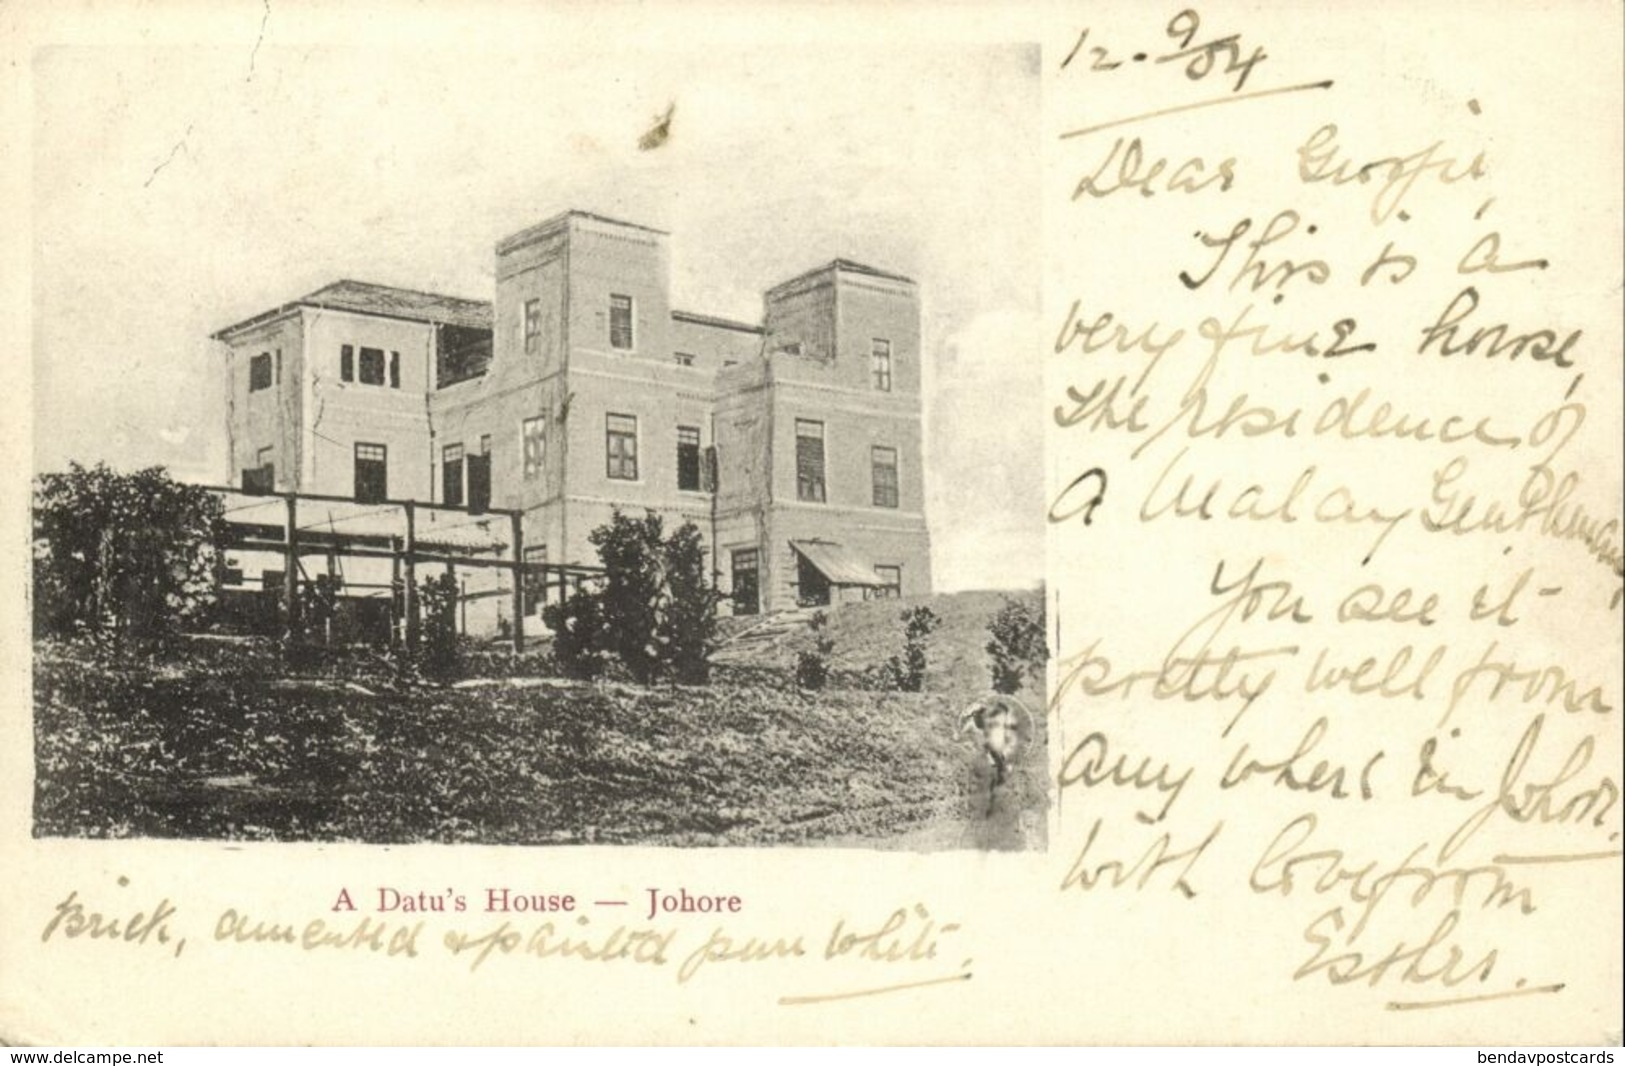 12. 9/04
Dear Georgie,
This is a
very fine house,
the residence of
a Malay Gentleman,
You see it
pretty well from
any where in Johore.
With love from
A Datu's House — Johore
Brick, cemented & painted pure white.
www.delcampe.net
bendavpostcards